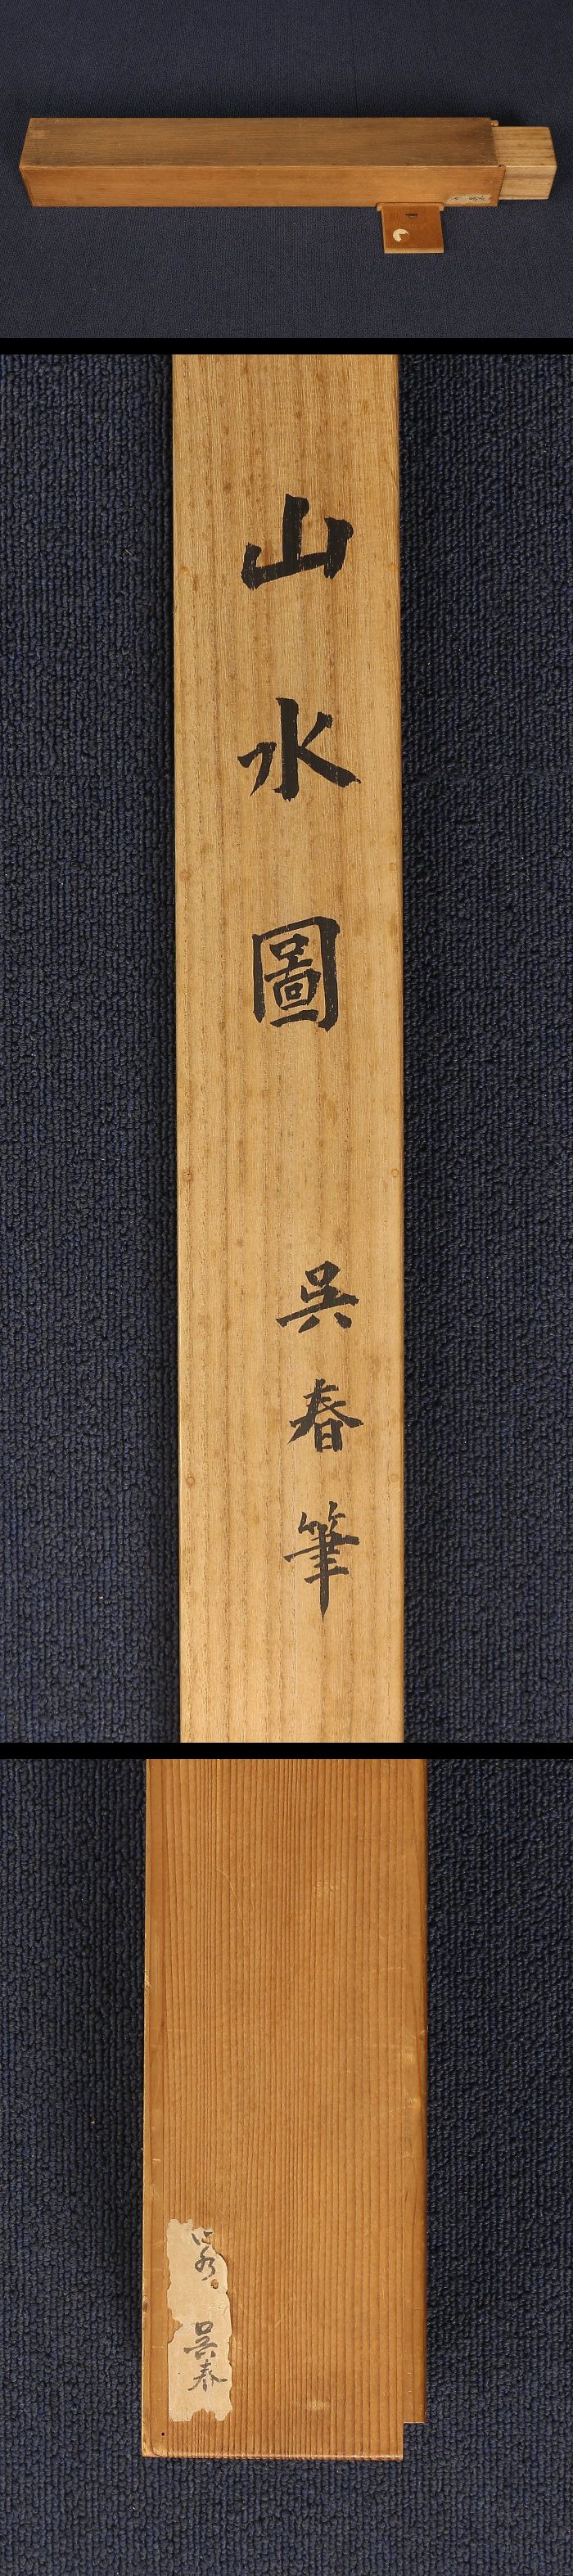 山水圖
呉春筆
山水 呉春